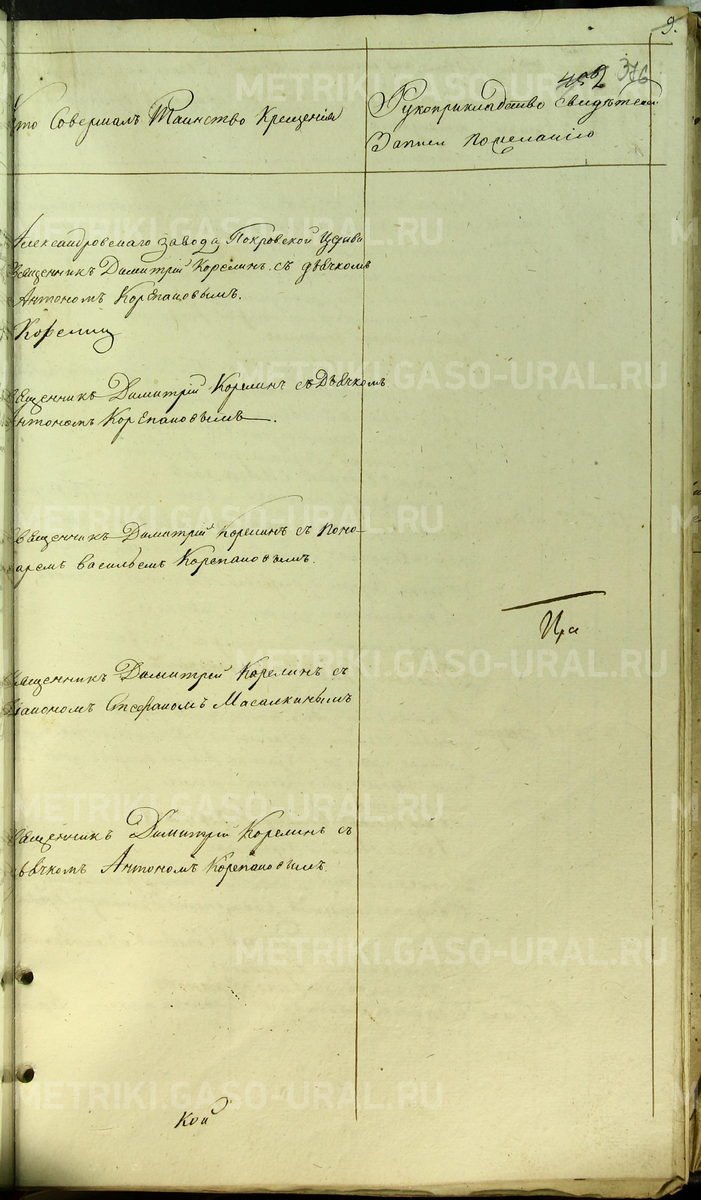 9.
376
Кто Совершалъ Таинство Крещенія
Рукоприкладство Свидѣтелей
Записи по желанію
Александровскаго завода Покровской Церкви
Священникъ Димитрій Корелинъ съ дьячкомъ
Антономъ Корепановымъ.
Корелинъ
Священникъ Димитрій Корелинъ съ Дьячкомъ
Антономъ Корепановымъ.
Священникъ Димитрій Корелинъ съ Поно-
маремъ Васильемъ Корепановымъ.
Священникъ Димитрій Корелинъ съ
Діакономъ Стефаномъ Масалкинымъ
Священникъ Димитрій Корелинъ съ
дьячкомъ Антономъ Корепановымъ.
кой
METRIKI.GASO-URAL.RU